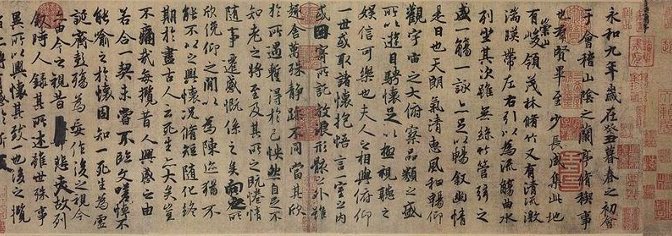 永和九年歲在癸丑暮春之初會
于會稽山陰之蘭亭脩稧事
也群賢畢至少長咸集此地
有崇山峻領茂林脩竹又有清流激
湍暎帶左右引以為流觴曲水
列坐其次雖無絲竹管弦之
盛一觴一詠亦足以暢敘幽情
是日也天朗氣清惠風和暢仰
觀宇宙之大俯察品類之盛
所以遊目騁懷足以極視聽之
娛信可樂也夫人之相與俯仰
一世或取諸懷抱悟言一室之內
或因寄所託放浪形骸之外雖
趣舍萬殊靜躁不同當其欣
於所遇暫得於己怏然自足不
知老之將至及其所之既惓情
隨事遷感慨係之矣向之所
欣俛仰之閒以為陳迹猶不
能不以之興懷況脩短隨化終
期於盡古人云死生亦大矣豈
不痛哉每攬昔人興感之由
若合一契未嘗不臨文嗟悼不
能喻之於懷固知一死生為虛
誕齊彭殤為妄作後之視今
亦由今之視昔悲夫故列
敘時人錄其所述雖世殊事
異所以興懷其致一也後之攬